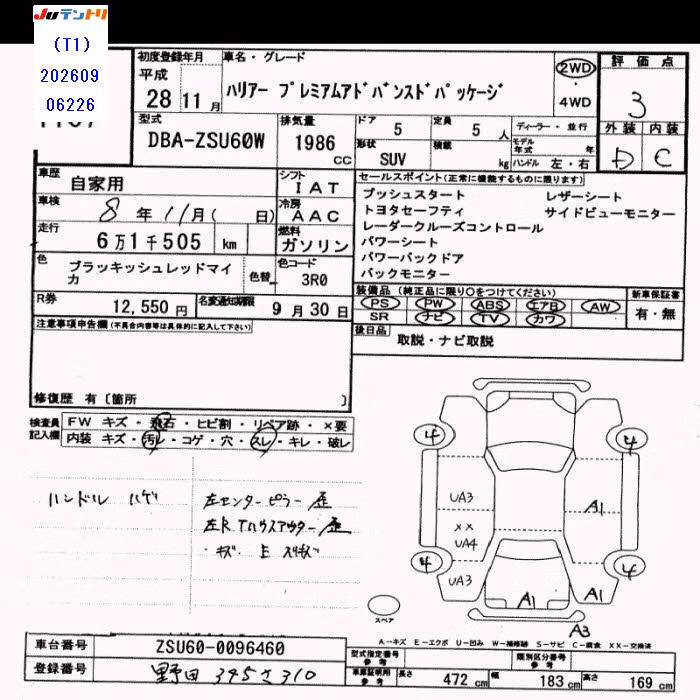 JUテントリ
(T1)
202609
06226
初度登録年月
平成
28年11月
車名・グレード
ハリアー プレミアムアドバンスドパッケージ
2WD
4WD
評価点
3
外装 内装
D C
型式
DBA-ZSU60W
排気量
1986
cc
ドア
5
定員
5人
形状
SUV
積載
kg
ディーラー・並行
モデル年式 年
ハンドル 左・右
車歴
自家用
シフト
IAT
車検
8年11月(日)
冷房
AAC
走行
6万1千505km
燃料
ガソリン
色
ブラッキッシュレッドマイカ
色替
色コード
3R0
R券
12,550円
名変通知期限
9月30日
セールスポイント(正常に機能するものに限ります)
プッシュスタート レザーシート
トヨタセーフティ サイドビューモニター
レーダークルーズコントロール
パワーシート
パワーバックドア
バックモニター
装備品 (純正品に限り○をつけてください)
PS PW ABS エアB AW
SR ナビ TV カワ
新車保証書
有・無
後日品
取説・ナビ取説
注意事項申告欄(不具合内容等は具体的に記入して下さい)
修復歴 有〔箇所 〕
検査員記入欄
FW キズ・飛石・ヒビ割・リペア跡・×要
内装 キズ・汚レ・コゲ・穴・スレ・キレ・破レ
ハンドル ハゲ
左センターピラー歪
左R.Tハウスアウター歪
4
4
UA3
A1
XX
UA4
4
4
UA3
A1
A1
スペア
A3
A-キズ E-エクボ U-凹み W-補修跡 S-サビ C-腐食 XX-交換済
車台番号
ZSU60-0096460
登録番号
野田 345さ310
型式指定番号
参考
類別区分番号
参考
車庫証明用
参考
長さ 472cm 幅 183cm 高さ 169cm